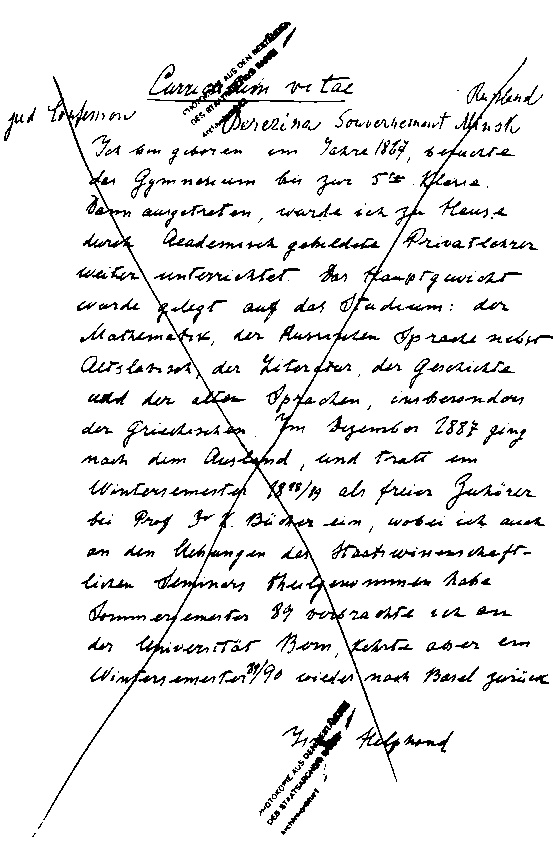 Curriculum vitae
PHOTOKOPIE AUS DEN BESTÄNDEN
DES STAATSARCHIVS BASEL
Russland
jüd Confession
Berezina Gouvernement Minsk
Ich bin geboren im Jahre 1867, besuchte
das Gymnasium bis zur 5ten Klasse.
Dann ausgetreten, wurde ich zu Hause
durch Academisch gebildete Privatlehrer
weiter unterrichtet. Das Hauptgewicht
wurde gelegt auf das Studium: der
Mathematik, der Russischen Sprache nebst
Altslavisch, der Literatur, der Geschichte
und der alten Sprachen, insbesonders
der Griechischen. Im Dezember 1887 ging
nach dem Ausland, und tratt im
Wintersemester 1888/89 als freier Zuhörer
bei Prof Dr K. Bücher ein, wobei ich auch
an den Uebungen des Staatswissenschaft-
lichen Seminars theilgenommen habe
Sommersemester 89 verbrachte ich an
der Universität Bern, kehrte aber im
Wintersemester 89/90 wieder nach Basel zurück
Helphand
PHOTOKOPIE AUS DEN BESTÄNDEN
DES STAATSARCHIVS BASEL